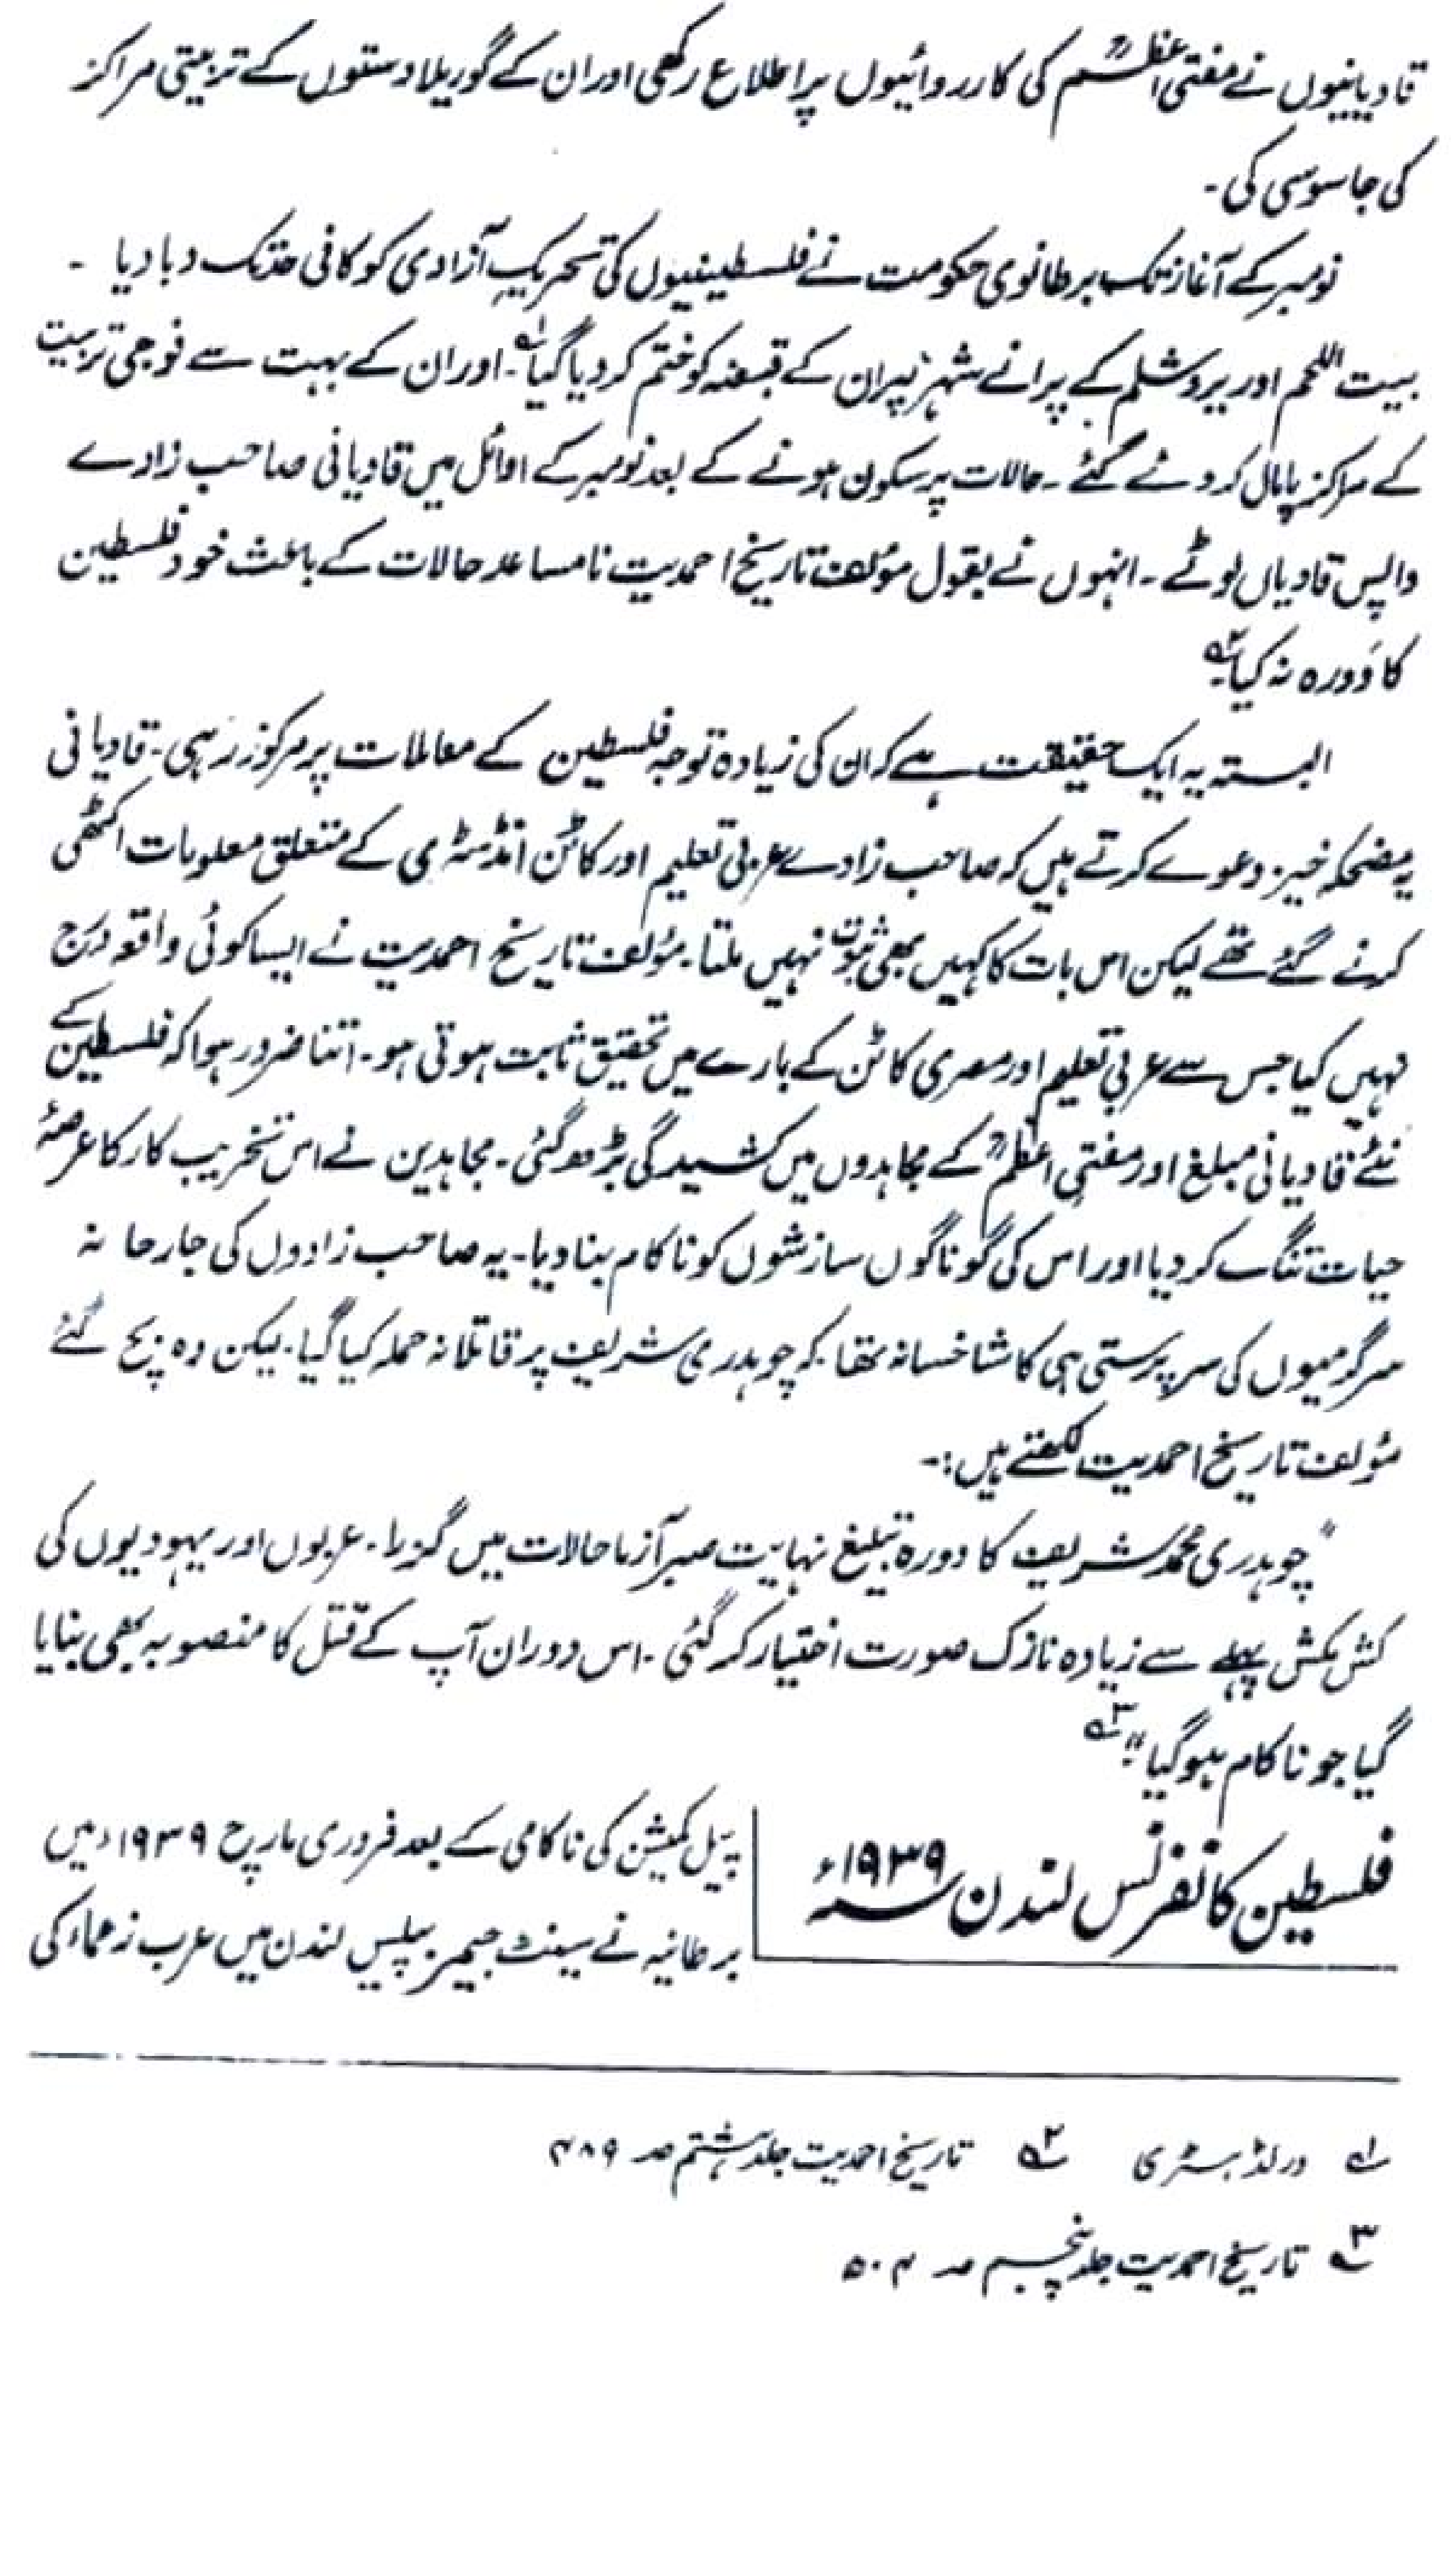 قادیانیوں نے مفتی اعظمؒ کی کارروائیوں پر اطلاع رکھی اور ان کے گوریلا دستوں کے تربیتی مراکز
کی جاسوسی کی۔
نومبر کے آغاز تک برطانوی حکومت نے فلسطینیوں کی تحریکِ آزادی کو کافی حد تک دبا دیا ۔
بیت اللحم اور یروشلم کے پرانے شہر پر ان کے قبضہ کو ختم کر دیا گیا۱؎۔ اور ان کے بہت سے فوجی تربیت
کے مراکز پامال کر دئے گئے ۔ حالات پرسکون ہونے کے بعد نومبر کے اوائل میں قادیانی صاحب زادے
واپس قادیاں لوٹے ۔ انہوں نے بقول مؤلف تاریخ احمدیت نامساعد حالات کے باعث خود فلسطین
کا دَورہ نہ کیا۲؎۔
البتہ یہ ایک حقیقت ہے کہ ان کی زیادہ توجہ فلسطین کے معاملات پر مرکوز رہی ۔ قادیانی
یہ مضحکہ خیز دعوے کرتے ہیں کہ صاحب زادے عربی تعلیم اور کاٹن انڈسٹری کے متعلق معلومات اکٹھی
کرنے گئے تھے لیکن اس بات کا کہیں بھی ثبوت نہیں ملتا۔ مؤلف تاریخ احمدیت نے ایسا کوئی واقعہ درج
نہیں کیا جس سے عربی تعلیم اور مصری کاٹن کے بارے میں تحقیق ثابت ہوتی ہو۔ اتنا ضرور ہوا کہ فلسطین کے
نئے قادیانی مبلغ اور مفتی اعظمؒ کے مجاہدوں میں کشیدگی بڑھ گئی ۔ مجاہدین نے اس تخریب کار کا عرصۂ
حیات تنگ کر دیا اور اس کی گوناگوں سازشوں کو ناکام بنا دیا۔ یہ صاحب زادوں کی جارحانہ
سرگرمیوں کی سرپرستی ہی کا شاخسانہ تھا کہ چوہدری شریف پر قاتلانہ حملہ کیا گیا۔ لیکن وہ بچ گئے
مؤلف تاریخ احمدیت لکھتے ہیں :۔
"چوہدری محمد شریف کا دورہ تبلیغ نہایت صبر آزما حالات میں گزرا ۔ عربوں اور یہودیوں کی
کش مکش پہلے سے زیادہ نازک صورت اختیار کر گئی ۔ اس دوران آپ کے قتل کا منصوبہ بھی بنایا
گیا جو ناکام ہو گیا"۳؎
فلسطین کانفرنس لندن ۱۹۳۹ء
پیل کمیشن کی ناکامی کے بعد فروری مارچ ۱۹۳۹ء میں
برطانیہ نے سینٹ جیمز پیلس لندن میں عرب زعماء کی
۱؎ ورلڈ ہسٹری ۲؎ تاریخ احمدیت جلد ہشتم صہ ۴۸۹
۳؎ تاریخ احمدیت جلد پنجم صہ ۵۰۴